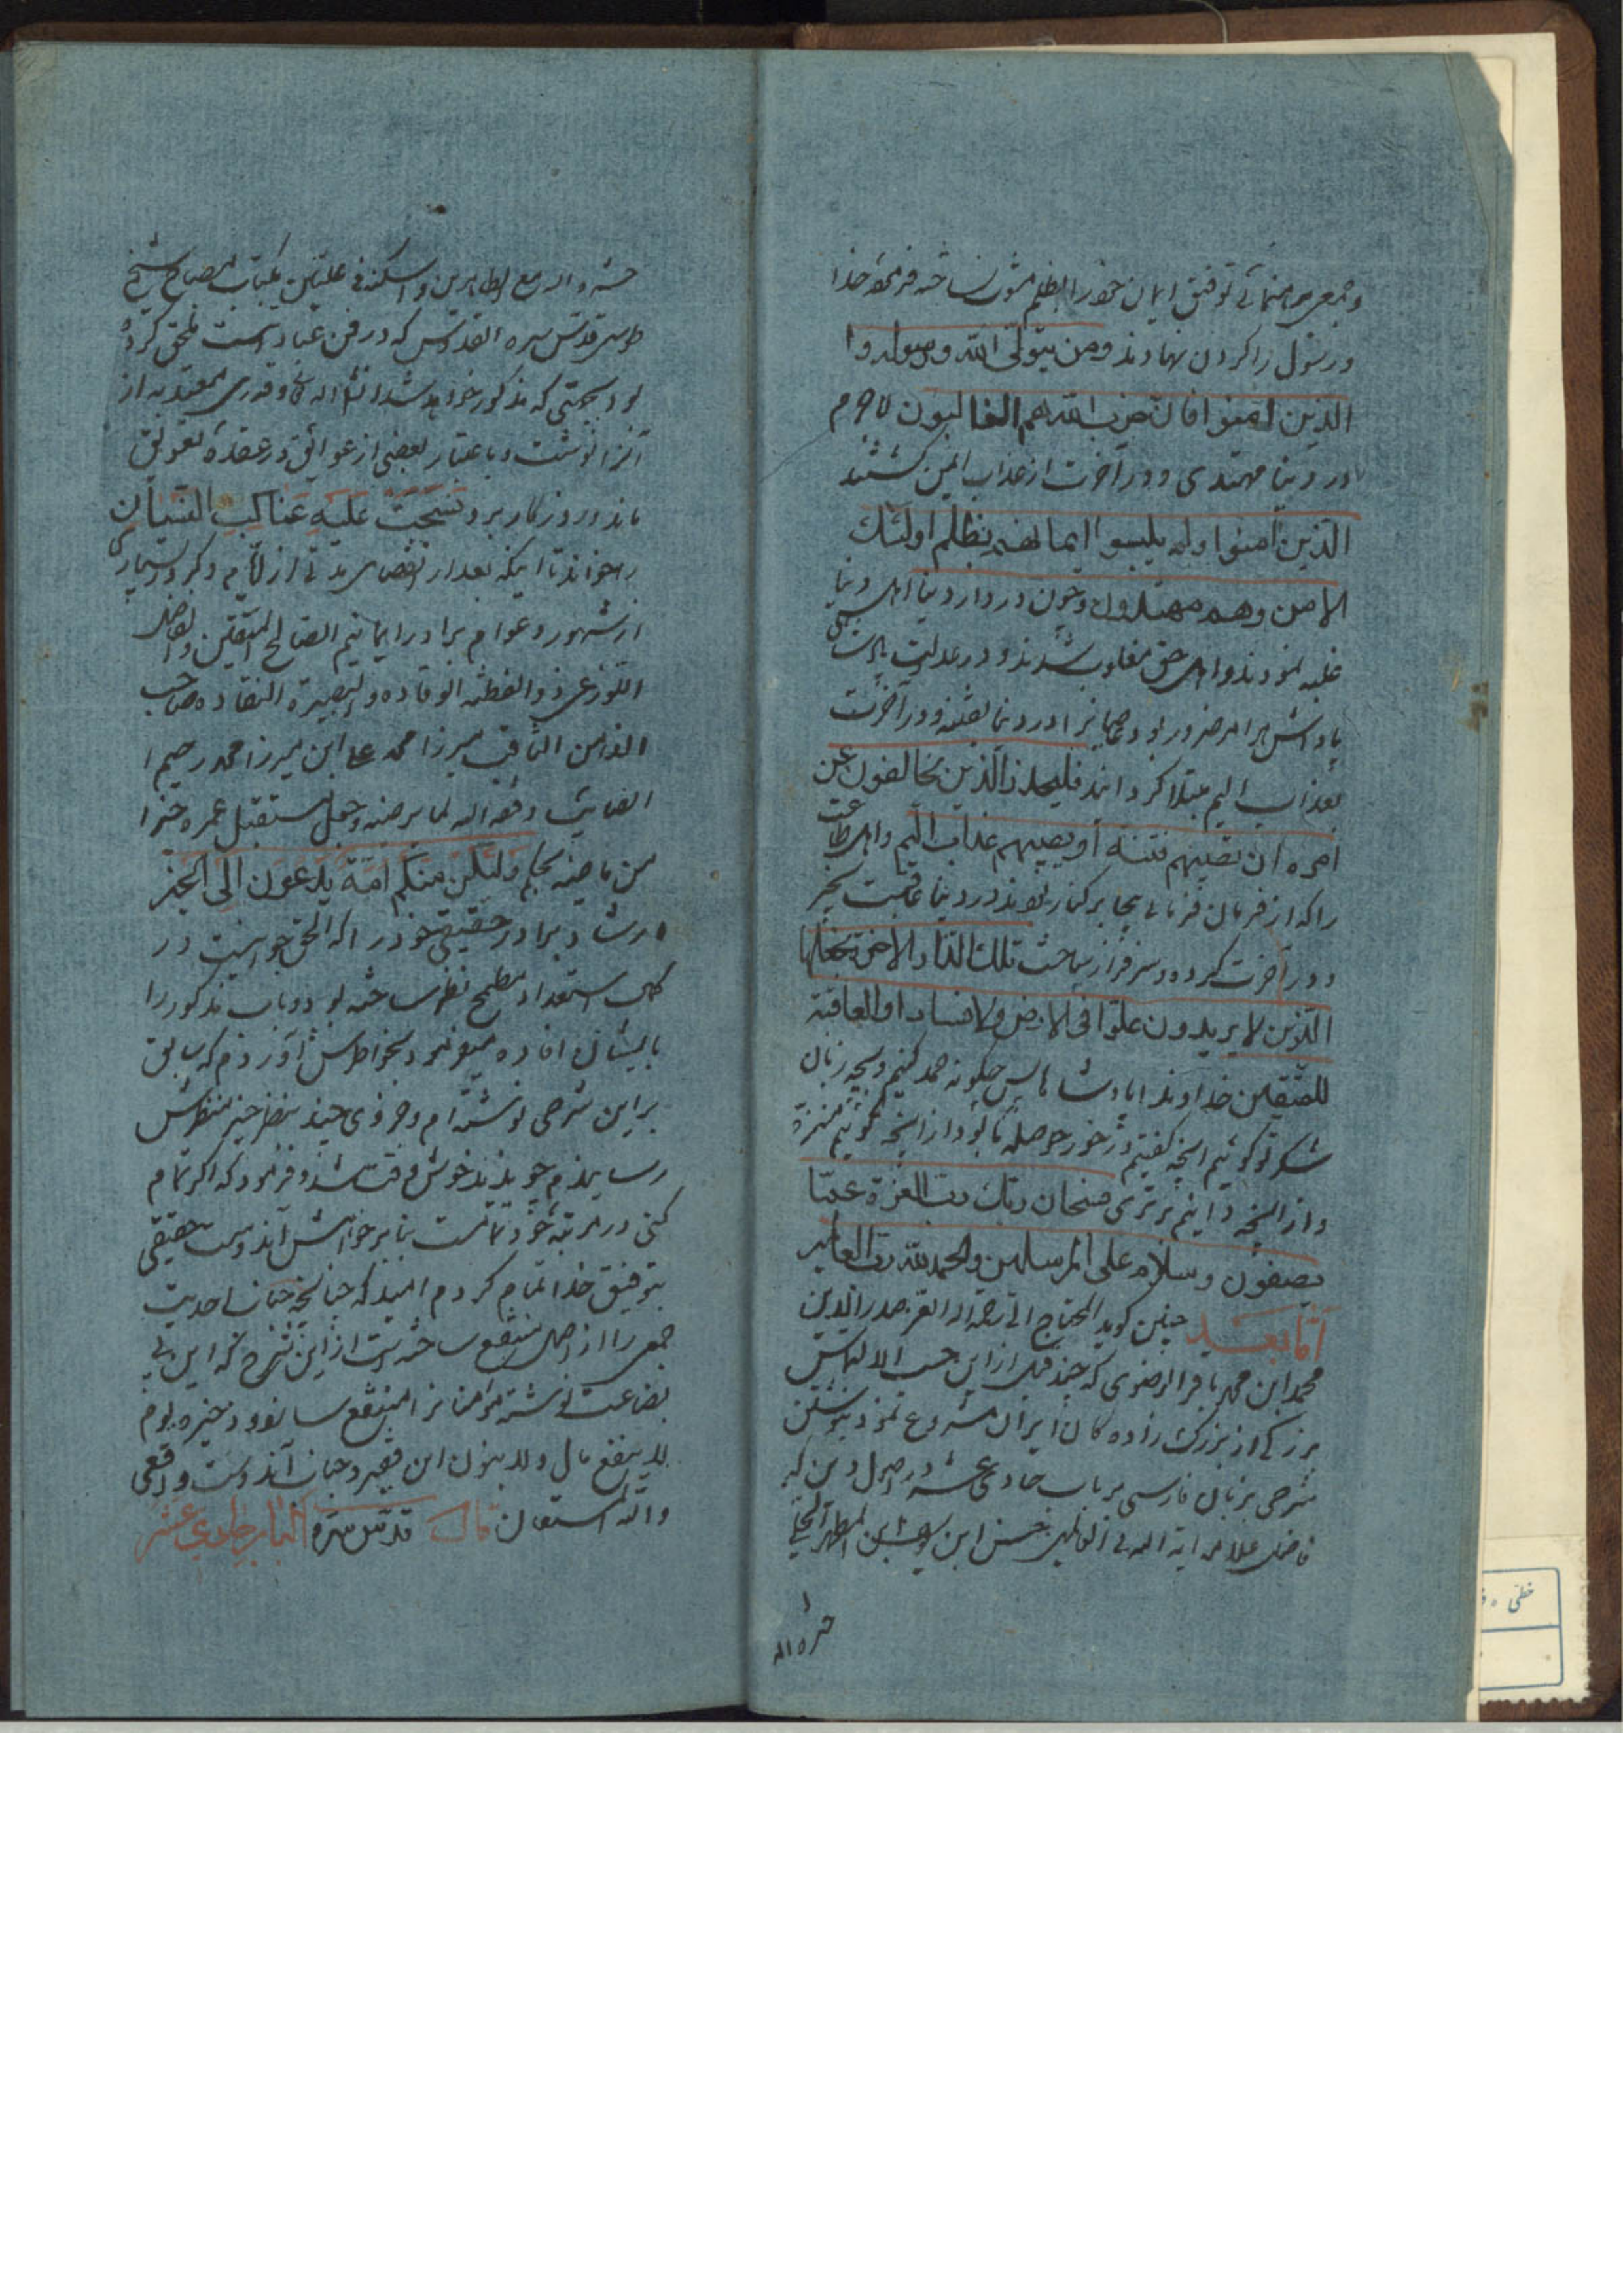 و جمعی برهنمائی توفیق ایمان خود را بظلم مشوب نساخته فرموده خدا
و رسول را کردن نهادند ومن یتولی الله ورسوله وا
الذین امنوا فان حزب الله هم الغالبون لاجرم
در دنیا مهتدی و در آخرت از عذاب ایمن کشتند
الذین امنوا ولم یلبسوا ایمانهم بظلم اولئك
الامن وهم مهتدون وچون در دار دنیا اهل دنیا
غلبه نمودند و اهل حق مغلوب شدند و در عدلیت
پاداش هر امر ضرور بود در دنیا بفتنه و در آخرت
بعذاب الیم مبتلا کردانید فلیحذر الذین یخالفون عن
امره ان تصیبهم فتنة او یصیبهم عذاب الیم و اهل طاعت
را که از فرمان فرمائی بیجا بر کنار بودند در دنیا عاقبت بخیر
و در آخرت کرده و سرفراز ساخت تلك الدار الاخرة نجعلها
للذین لا یریدون علوا فی الارض ولا فسادا والعاقبة
للمتقین خداوندا پادشاها پس چکونه حمد کنیم و بچه زبان
شکر تو کوئیم آنچه کفتیم در خور حوصله ما بود از آنچه کوئیم منزهٔ
و از آنچه دانیم برتری سبحان ربك رب العزة عما
یصفون وسلام علی المرسلین والحمد لله رب العالمین
اما بعد چنین کوید المحتاج الی رحمة الله صدر الدین
محمد ابن محمد باقر الرضوی که چند قبل از این حسب الالتماس
بزرکی از بزرک زاده کان ایران شروع نمود بنوشتن
شرحی بزبان فارسی بر باب حادی عشر در اصول دین که
فاضل علامه آیة الله فی العالمین حسن ابن یوسف ابن المطهر الحلی
حشره الله
حشره الله مع الطاهرین و اسکنه فی علیین بکتاب مصباح شیخ
طوسی قدس سره القدوس که در فن عبادتست ملحق کرده
بود بجهتی که مذکور خواهد شد انشاء الله و قدری معتد به از
آنرا نوشت و باعتبار بعضی از عوائق در عقدهٔ تعویق
ماند و روزکار بر و نسجت علیه عناکب النسیان
بر خواند تا اینکه بعد از انقضای مدتی از ایام و کرور بسیاری
از شهور و عوام برادر ایمانیم الصالح المتقین والفاضل
اللوذعی ذو الفطنة الوقاده والبصیرة النقاده صاحب
الذهن الثاقب میرزا محمد علی ابن میرزا محمد رحیم
وفقه الله لما یرضیه وجعل مستقبل عمره خیرا
من ماضیه بحکم ولتکن منکم امة یدعون الی الخیر
ارشاد برادر حقیقی خود را که الحق جوانیست در
کمال استعداد مطمح نظر ساخته بود و باب مذکور را
بایشان افاده میفرمود بخواطرش آوردم که سابق
بر این شرحی نوشته ام و جزوی چند بنظر منظرش
رسانیدم چو دیدند خوش وقت شد و فرمود که اکر تمام
کنی در مرتبهٔ خود تمامست بنا بر خواهش آن دوست حقیقی
بتوفیق خدا تمام کردم امید که چنانچه جناب احدیت
جمعی را از اصل منتفع ساخته است از این شرح که این بی
بضاعت نوشته مؤمنانرا منتفع سازد و ذخیره یوم
لا ینفع مال ولا بنون این فقیر و جناب آن دوست واقعی
والله المستعان قال قدس سره الباب الحادی عشر